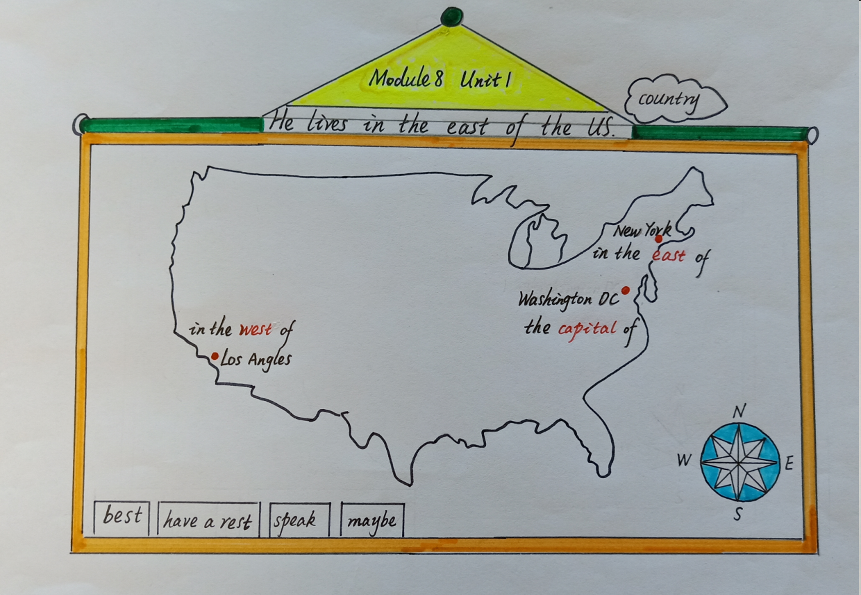 Module 8 Unit 1
country
He lives in the east of the US.
New York
in the east of
Washington DC
the capital of
in the west of
Los Angles
N
W
E
S
best
have a rest
speak
maybe